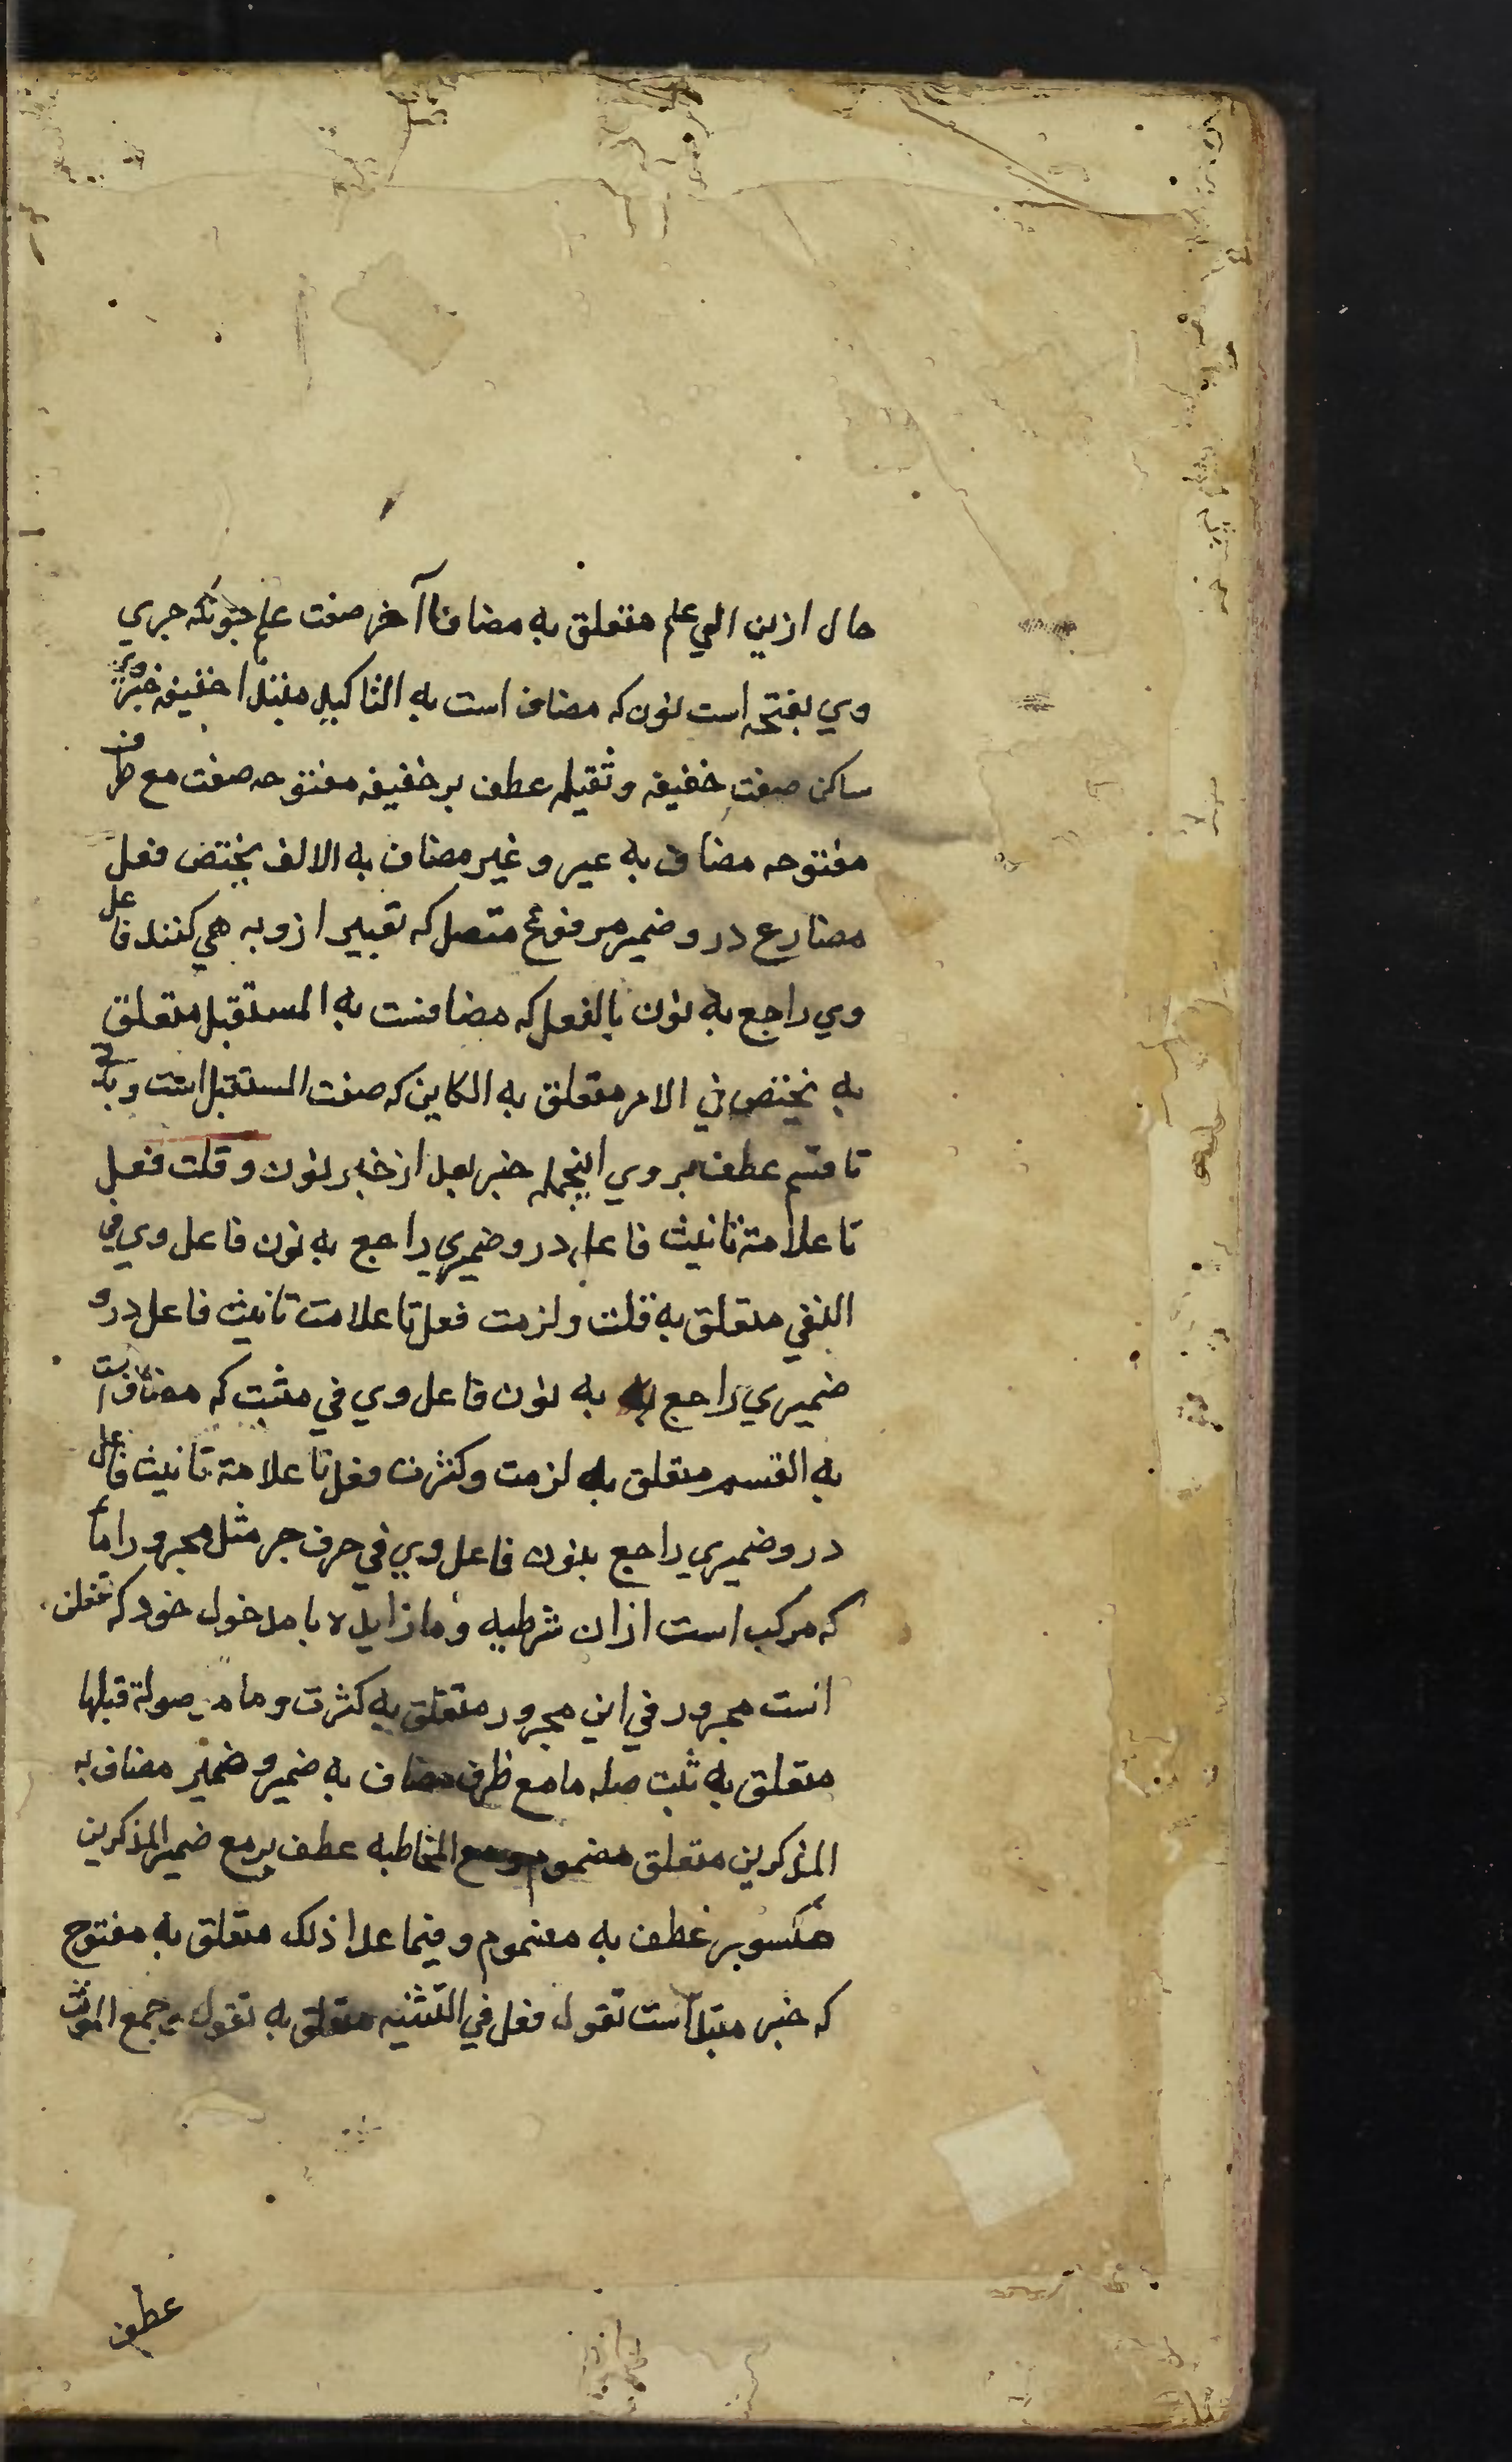 حال ازین الي علم متعلق به مضافا آخر صفت علم چنونکه جري
وي بفتحه است نون که مضاف است به التاکید مبتدا خفیفه خبر وي
ساکن صفت خفیفه و ثقیله عطف بر خفیفه مفتوحه صفت مع ظرف
مفتوحه مضاف به عیر و غیر مضاف به الالف یختص فعل
مضارع درو ضمیر مرفوع متصل که تعبیر ازو به هي کنند فاعل
وي راجع به نون بالفعل که مضافست به المستقبل متعلق
به یختص في الامر متعلق به الکاین که صفت المستقبل است و باقی
تا قسم عطف بر وي اینجمله خبر بعد از خبر نون و قلت فعل
تا علامة تانیث فاعل درو ضمیري راجع به نون فاعل وي في
النفي متعلق به قلت و لزمت فعل تا علامت تانیث فاعل درو
ضمیري راجع به نون فاعل وي في مثبت که مضاف است
به القسم متعلق به لزمت و کثرت فعل تا علامة تانیث فاعل
درو ضمیري راجع بنون فاعل وي في حرف جر مثل مجرور اما
که مرکب است ازان شرطیه و ما زایده با مدخول خود که تفعلن
است مجرور في این مجرور متعلق به کثرت و ما موصولة قبلها
متعلق به ثبت صله ما مع ظرف مضاف به ضمیر و ضمیر مضاف به
المذکرین متعلق مضموم و مع المخاطبه عطف بر مع ضمیر المذکرین
مکسور عطف به مضموم و فیما عدا ذلک متعلق به مفتوح
که خبر مبتدا است تقول فعل في التثنیه متعلق به تقول و جمع المونث
عطف